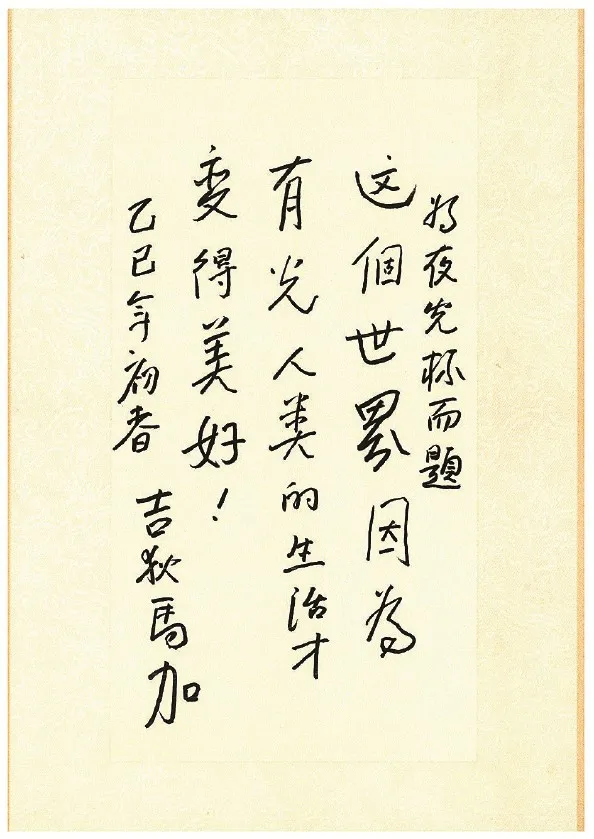 为夜光杯而題
这個世界因為
有光人类的生活才
变得美好！
乙巳年初春
吉狄馬加